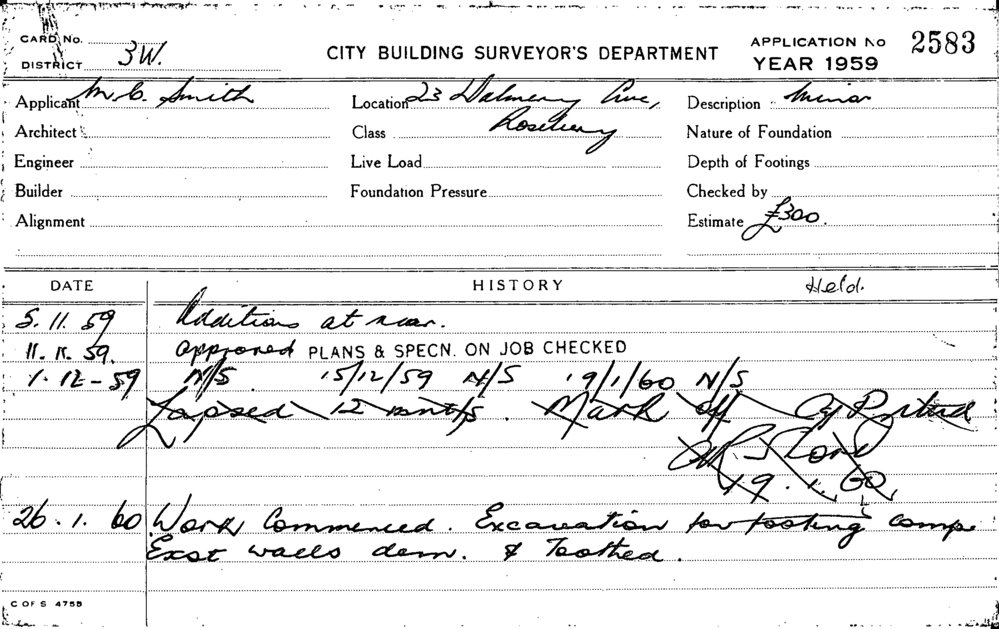 CARD No.
DISTRICT 3W.
CITY BUILDING SURVEYOR'S DEPARTMENT
APPLICATION No 2583
YEAR 1959
Applicant M. C. Smith
Location 23 Dalmeny Ave,
Rosebery
Description Minor
Architect
Class
Nature of Foundation
Engineer
Live Load
Depth of Footings
Builder
Foundation Pressure
Checked by
Alignment
Estimate £300.
DATE HISTORY Held.
5. 11. 59 Additions at rear.
11. 11. 59. approved PLANS & SPECN. ON JOB CHECKED
1. 12 - 59 N/S 15/12/59 N/S 19/1/60 N/S
Lapsed 12 months. Mark off
19. 1. 60
26. 1. 60 Work Commenced. Excavation for footing comp
Exst walls dem. & Toothed.
C OF S 4755